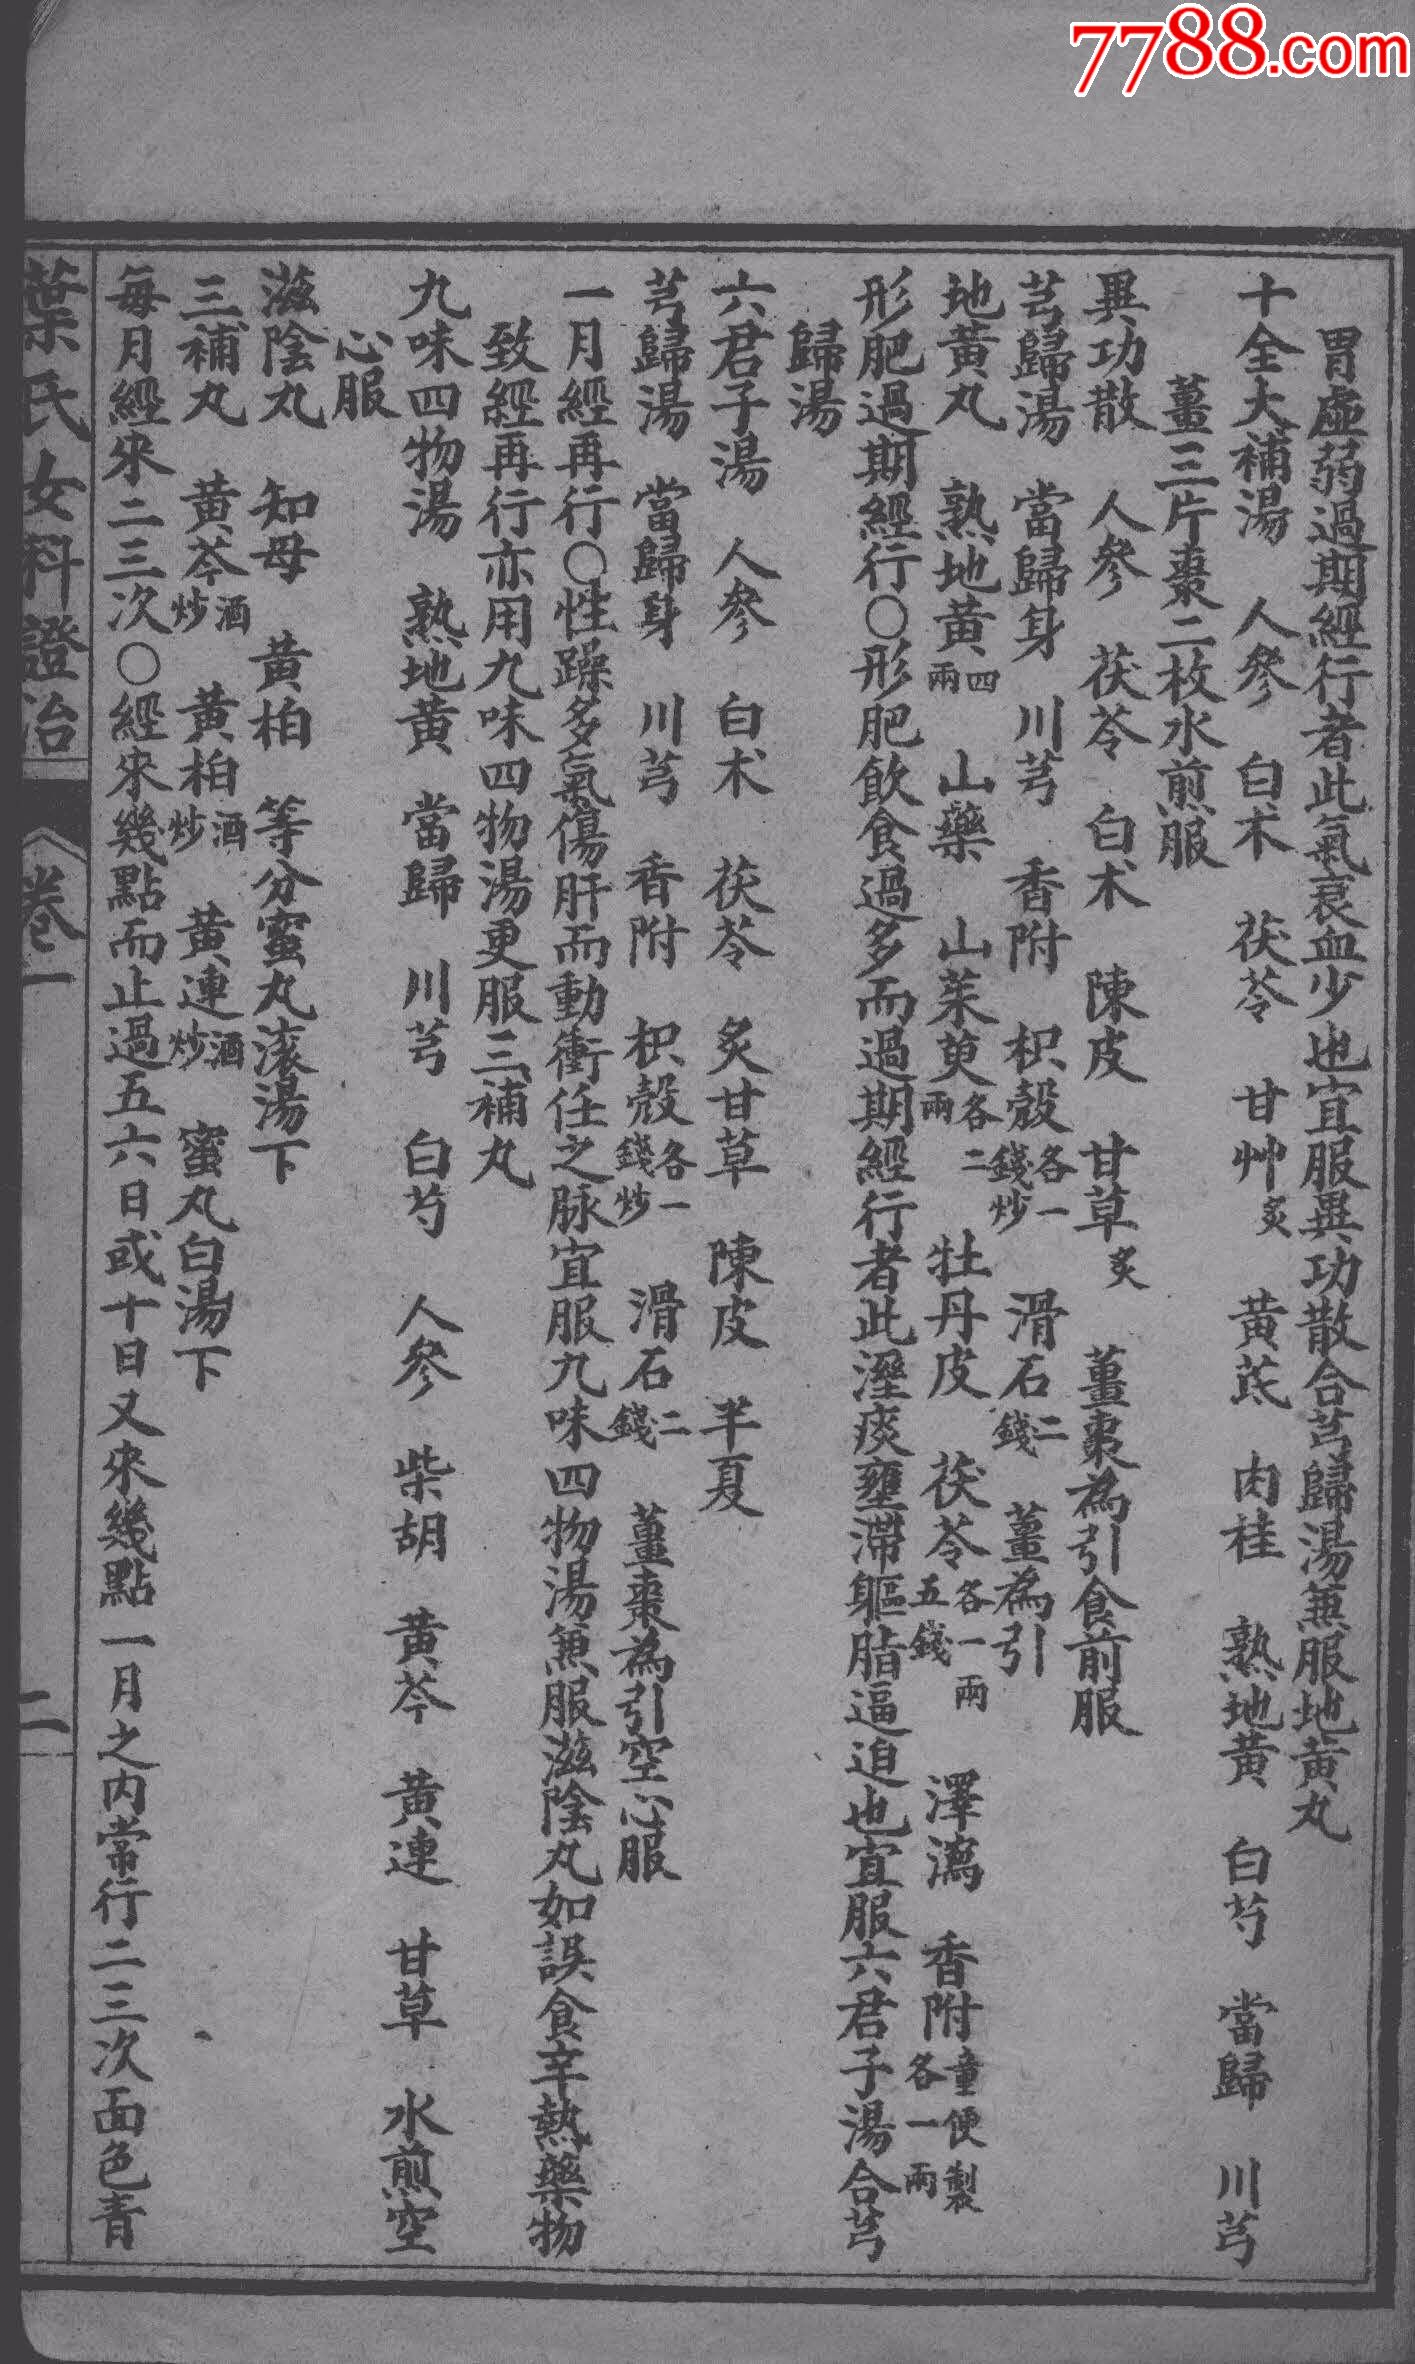 7788.com
胃虛弱過期經行者此氣衰血少也宜服異功散合芎歸湯兼服地黃丸
十全大補湯 人參 白朮 茯苓 甘艸炙 黃芪 肉桂 熟地黃 白芍 當歸 川芎
薑三片棗二枚水煎服
異功散 人參 茯苓 白朮 陳皮 甘草炙 薑棗為引食前服
芎歸湯 當歸身 川芎 香附 枳殼各一錢炒 滑石二錢 薑為引
地黃丸 熟地黃四兩 山藥 山茱萸各二兩 牡丹皮 茯苓各一兩五錢 澤瀉 香附童便製各一兩
形肥過期經行○形肥飲食過多而過期經行者此溼痰壅滯軀脂逼迫也宜服六君子湯合芎
歸湯
六君子湯 人參 白朮 茯苓 炙甘草 陳皮 半夏
芎歸湯 當歸身 川芎 香附 枳殼各一錢炒 滑石二錢 薑棗為引空心服
一月經再行○性躁多氣傷肝而動衝任之脉宜服九味四物湯兼服滋陰丸如誤食辛熱藥物
致經再行亦用九味四物湯更服三補丸
九味四物湯 熟地黃 當歸 川芎 白芍 人參 柴胡 黃芩 黃連 甘草 水煎空
心服
滋陰丸 知母 黃柏 等分蜜丸滾湯下
三補丸 黃芩酒炒 黃柏酒炒 黃連酒炒 蜜丸白湯下
每月經來二三次○經來幾點而止過五六日或十日又來幾點一月之內常行二三次面色青
葉氏女科證治 卷一 二